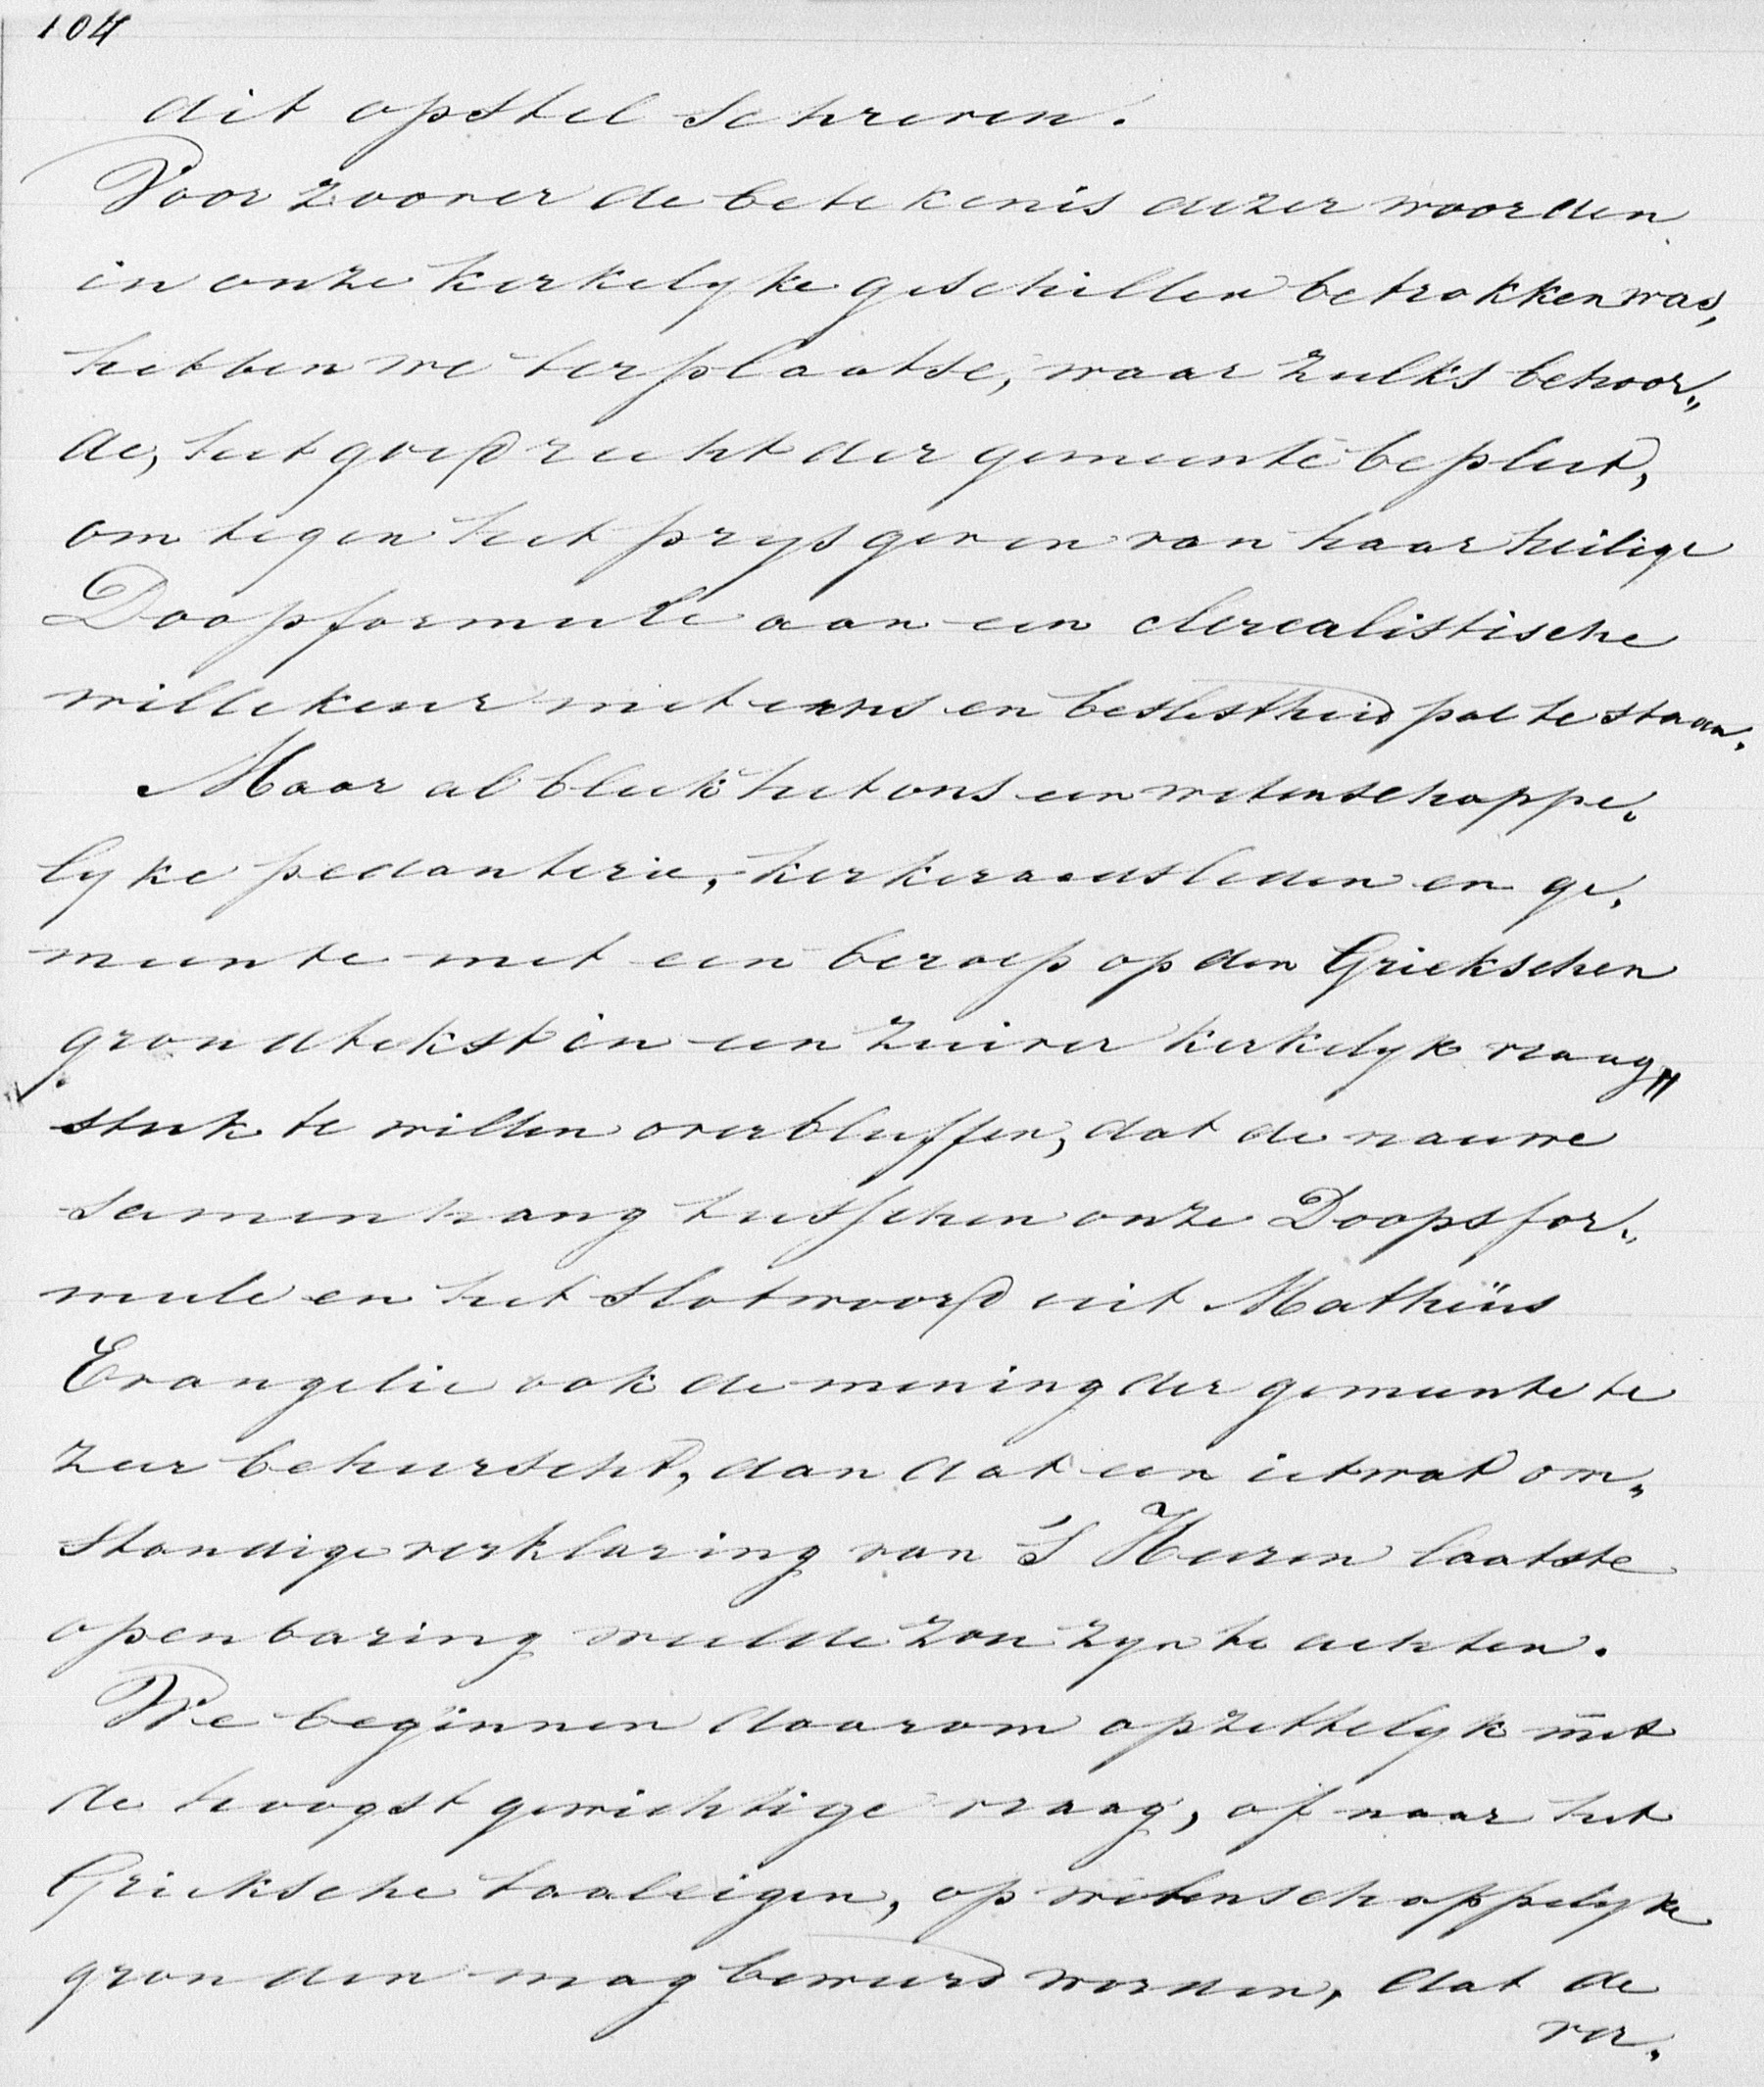 104
dit opstel schreven.
Voor zoover de betekenis dezer woorden
in onze kerkelyke geschillen betrokken was,
hebben we ter plaatse, waar zulks behoor„
de, het goed recht der gemeente bepleit,
om tegen het prysgeven van haar heilige
Doopformule aan een clerealistische
willekeur met erns en beslistheid pal te staan.
Maar al bleek het ons een wetenschappe„
lyke pedanterie, kerkeraadsleden en ge„
meente met een beroep op den Griekschen
grondtekst in een zuiver kerkelyk vraag„
stuk te willen overbluffen, dat de nauwe
samenhang tusschen onze Doopsfor„
mule en het slotwoord uit Mathëus
Evangelie ook de mening der gemeente te
zeer beheerscht, dan dat een ietwat om„
standige verklaring van 's Heeren laatste
openbaring weelde zou zyn te achten.
We beginnen daarom opzettelyk met
de hoogst gewichtige vraag, of naar het
Grieksche taaleigen, op wetenschappelyke
gronden mag beweerd worden, dat de
ver„